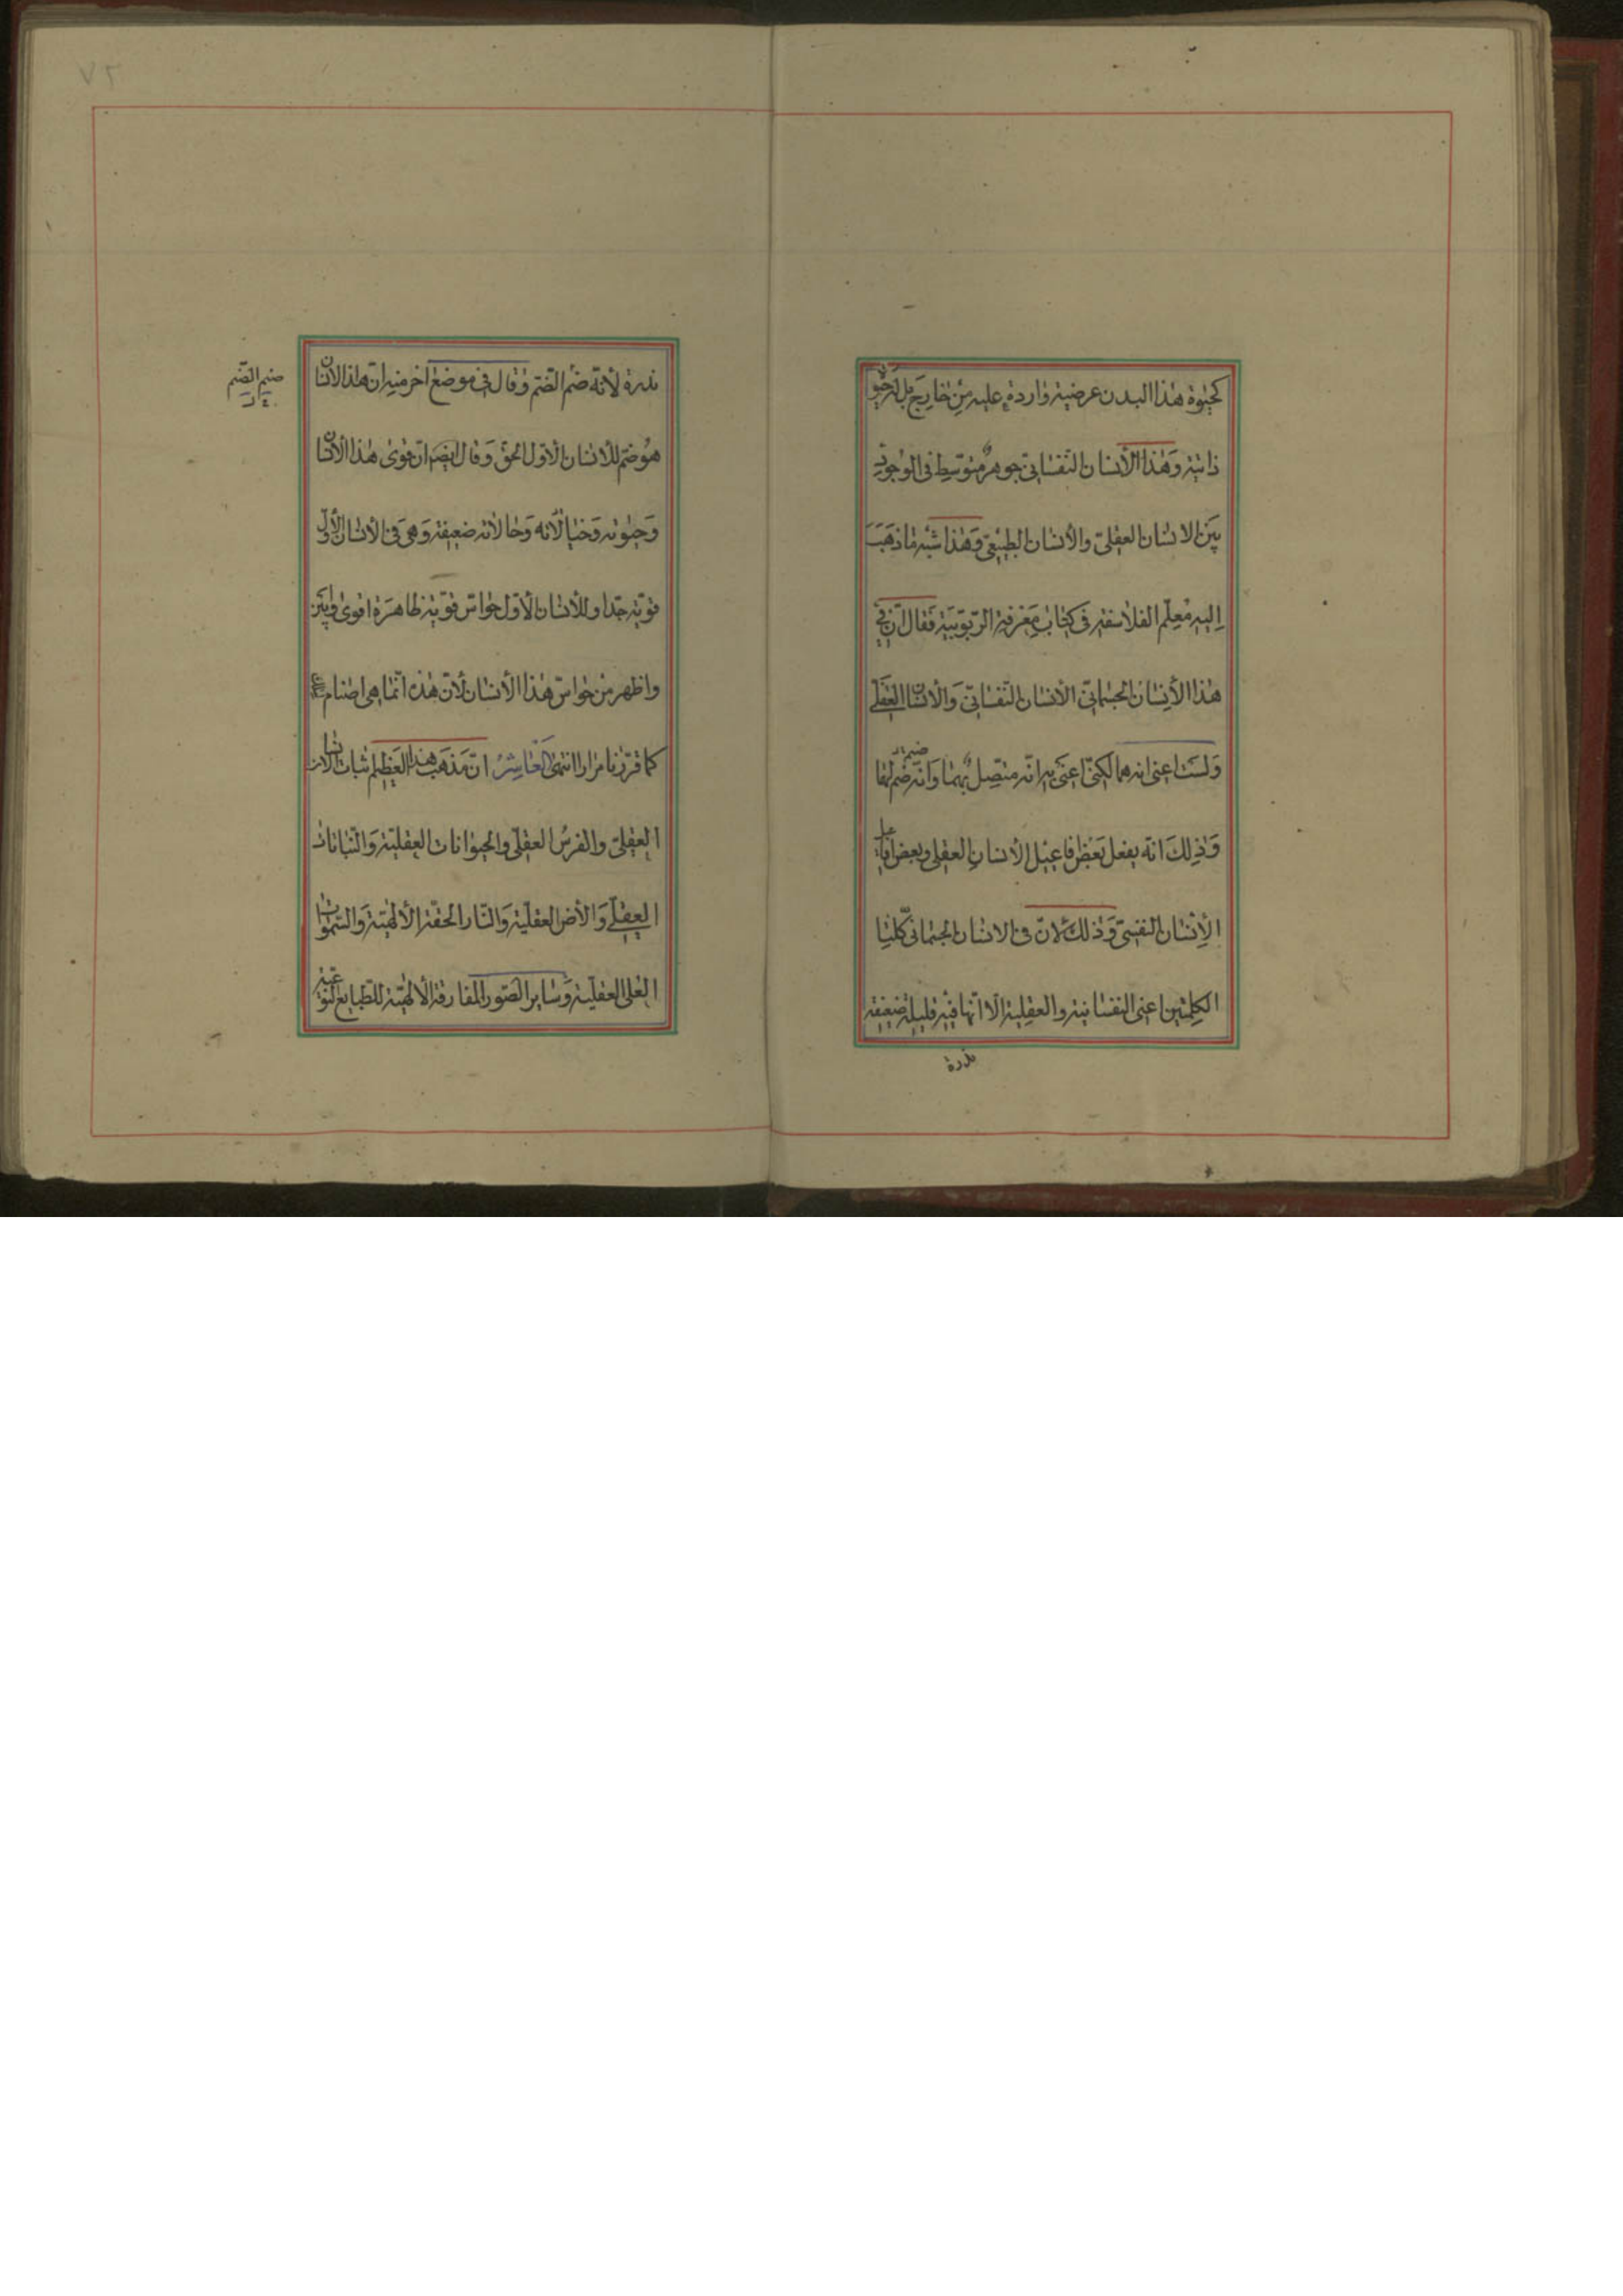 كحيوة هذا البدن عرضية واردة عليه من خارج بل له حيوة
ذاتية وهذا الأنسان النفسانى جوهر متوسط فى الوجود
بين الانسان العقلى والأنسان الطبيعى وهذا شبه ما ذهب
إليه معلم الفلاسفة فى كتاب معرفة الربوبية فقال ان فى
هذا الأنسان الجسمانى الأنسان النفسانى والأنسان العقلى
ولست اعنى انه هما لكنى اعنى به انه متصل بهما وانه ضم لهما
صنم
وذلك انه يفعل بعض افاعيل الأنسان العقلى وبعض افاعيل
الأنسان النفسى وذلك لأن فى الانسان الجسمانى كلتا
الكلمتين اعنى النفسانية والعقلية الا انها فيه قليلة ضعيفة
نذرة
٧٦
نذرة لأنه ضم الضم وقال فى موضع اخر منه ان هذا الانسان
صنم الصنم
هو ضم للأنسان الأول الحق وقال ايضا ان قوى هذا الأنسان
وحيوته وحالاته ضعيفة وهى فى الأنسان الأول
قوية جدا وللأنسان الأول حواس قوية ظاهرة اقوى وابين
واظهر من حواس هذا الأنسان لأن هذه انما هى اصنام
كما قررنا مرارا انتهى العاشر ان مذهب هذا العظيم اثبات الانسان
العقلى والفرس العقلى والحيوانات العقلية والنباتات
العقلى والأرض العقلية والنار الحقة الألهية والسموات
العلى العقلية وساير الصور المفارقة الألهية للطبايع النوعية